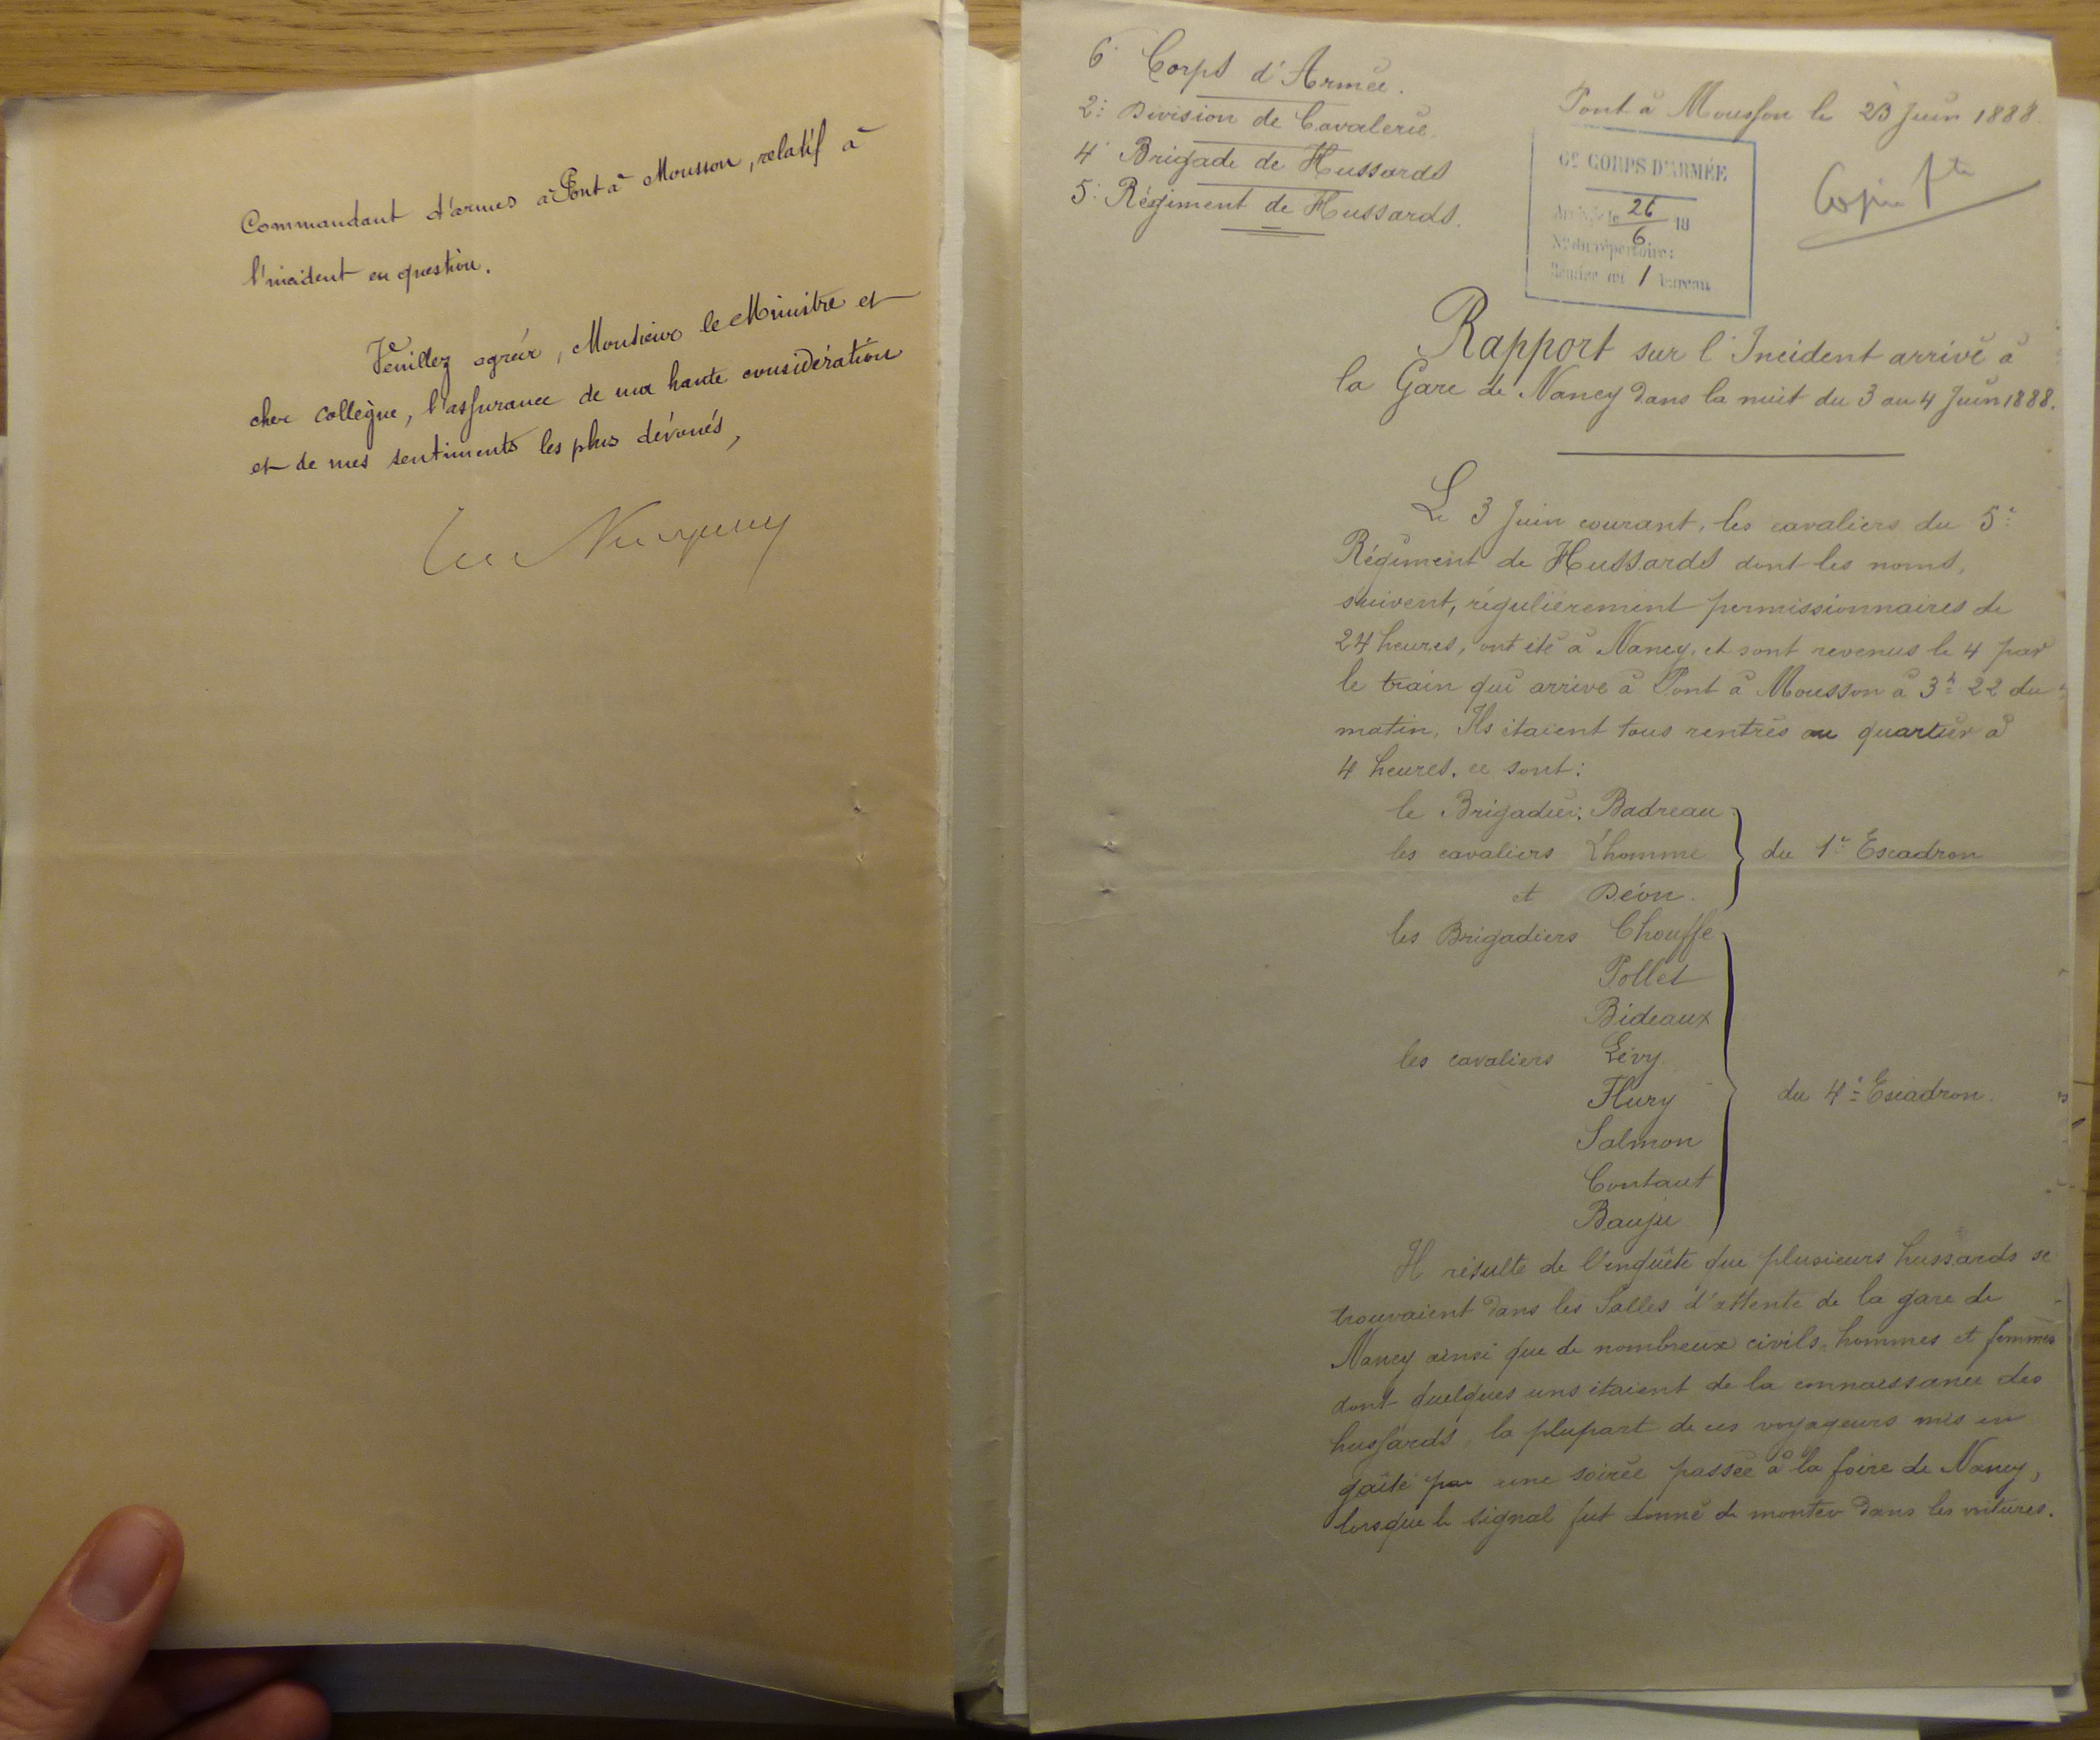 Commandant d'armes à Pont à Mousson, relatif à
l'incident en question.
Veuillez agréer, Monsieur le Ministre et
cher collègue, l'assurance de ma haute considération
et de mes sentiments les plus dévoués,
6e Corps d'Armée.
2e Division de Cavalerie
4e Brigade de Hussards
5e Régiment de Hussards.
Pont à Mousson le 23 Juin 1888.
6e CORPS D'ARMÉE
Arrivée le 26/6 18
No du répertoire:
Remise au 1 bureau
Copie fte
Rapport sur l'Incident arrivé à
la Gare de Nancy dans la nuit du 3 au 4 Juin 1888.
Le 3 Juin courant, les cavaliers du 5e
Régiment de Hussards dont les noms,
suivent, régulièrement permissionnaires de
24 heures, ont été à Nancy, et sont revenus le 4 par
le train qui arrive à Pont à Mousson à 3h 22 du
matin. Ils étaient tous rentrés au quartier à
4 heures. ce sont:
le Brigadier: Badreau
les cavaliers Lhomme
et Déon.
du 1er Escadron
les Brigadiers Chouffe
Pollet
Bideaux
les cavaliers Lévy
Flury
Salmon
Contaut
Bauju
du 4e Escadron.
Il résulte de l'enquête que plusieurs hussards se
trouvaient dans les Salles d'attente de la gare de
Nancy ainsi que de nombreux civils, hommes et femmes
dont quelques uns étaient de la connaissance des
hussards, la plupart de ces voyageurs mis en
gaîté par une soirée passée à la foire de Nancy,
lorsque le signal fut donné de monter dans les voitures.